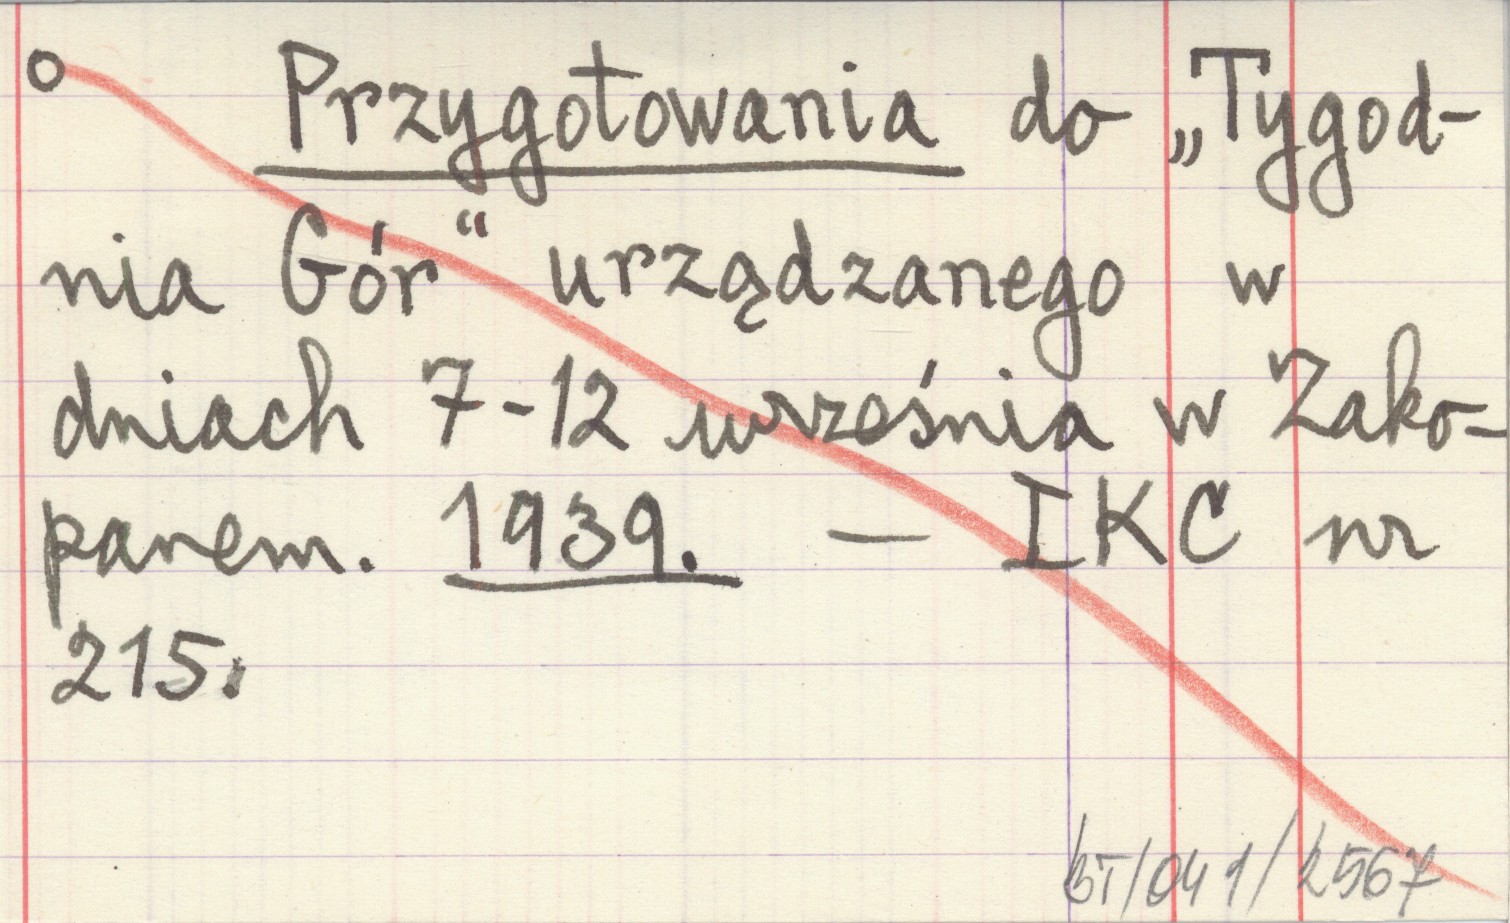 o Przygotowania do „Tygod-
nia Gór“ urządzanego w
dniach 7-12 września w Zako-
panem. 1939. — IKC nr
215.
BT/041/2567